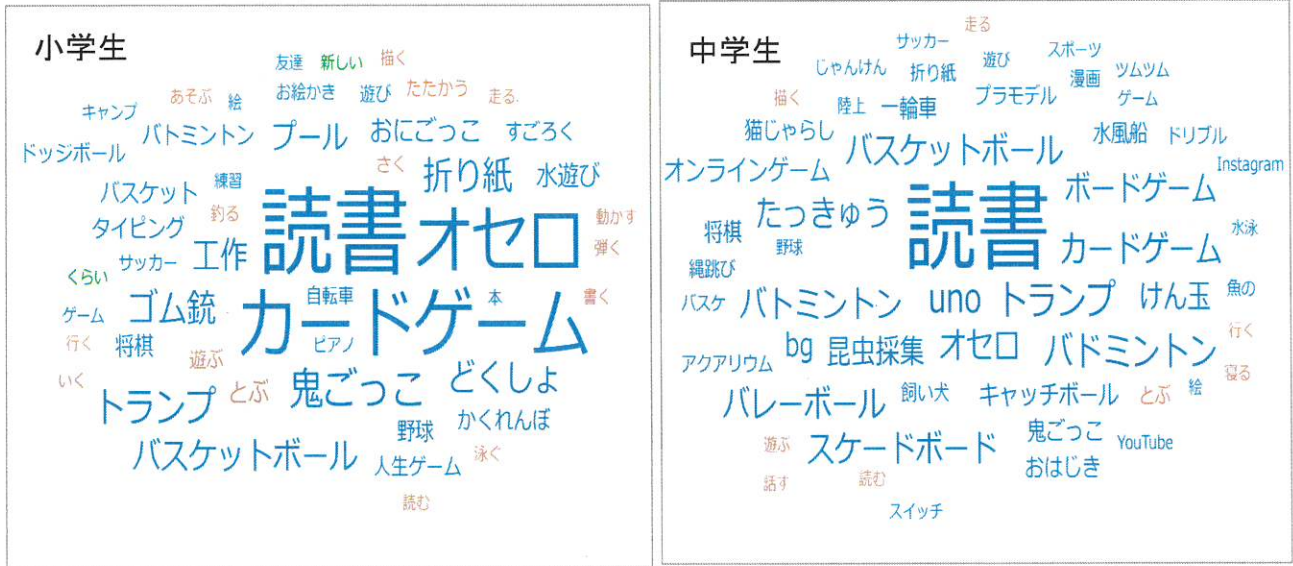 小学生
友達 新しい 描く
お絵かき 遊び たたかう 走る
あそぶ 絵
キャンプ
バトミントン プール おにごっこ すごろく
ドッジボール
さく 折り紙 水遊び
バスケット 練習
読書 オセロ
釣る 動かす
タイピング
弾く
サッカー 工作
くらい
カードゲーム
自転車 本 書く
ゲーム ゴム銃
行く 将棋 ピアノ
遊ぶ
いく 鬼ごっこ どくしょ
トランプ とぶ
野球 かくれんぼ
バスケットボール 人生ゲーム 泳ぐ
読む
中学生
走る
サッカー 遊び スポーツ
じゃんけん 折り紙 漫画 ツムツム
描く 陸上 一輪車 プラモデル ゲーム
猫じゃらし バスケットボール 水風船 ドリブル
オンラインゲーム Instagram
読書 ボードゲーム
たっきゅう
将棋 野球 カードゲーム 水泳
縄跳び
バスケ バトミントン uno トランプ けん玉 魚の
行く
アクアリウム bg 昆虫採集 オセロ バドミントン
寝る
バレーボール 飼い犬 キャッチボール とぶ 絵
遊ぶ スケードボード 鬼ごっこ YouTube
おはじき
話す 読む
スイッチ